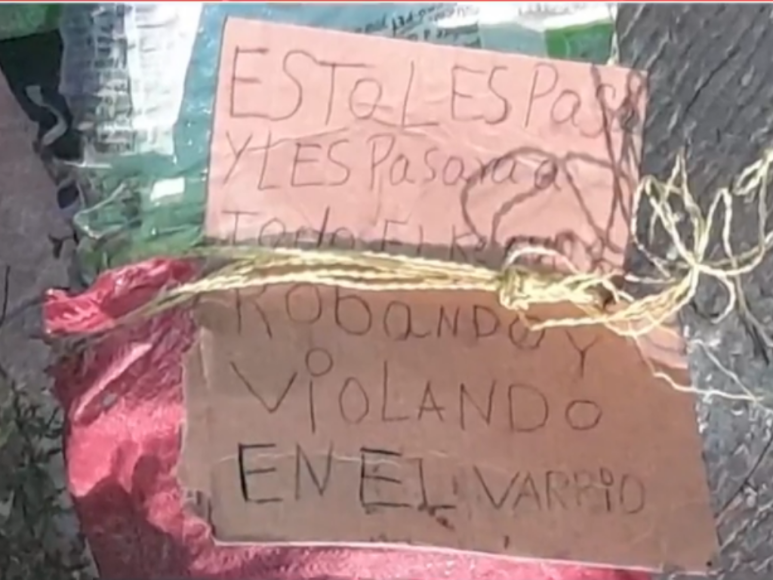 ESTO LES Pasa
Y LES Pasara a
Todo El
ROBANDO Y
ViOLANDO
EN EL VARRiO